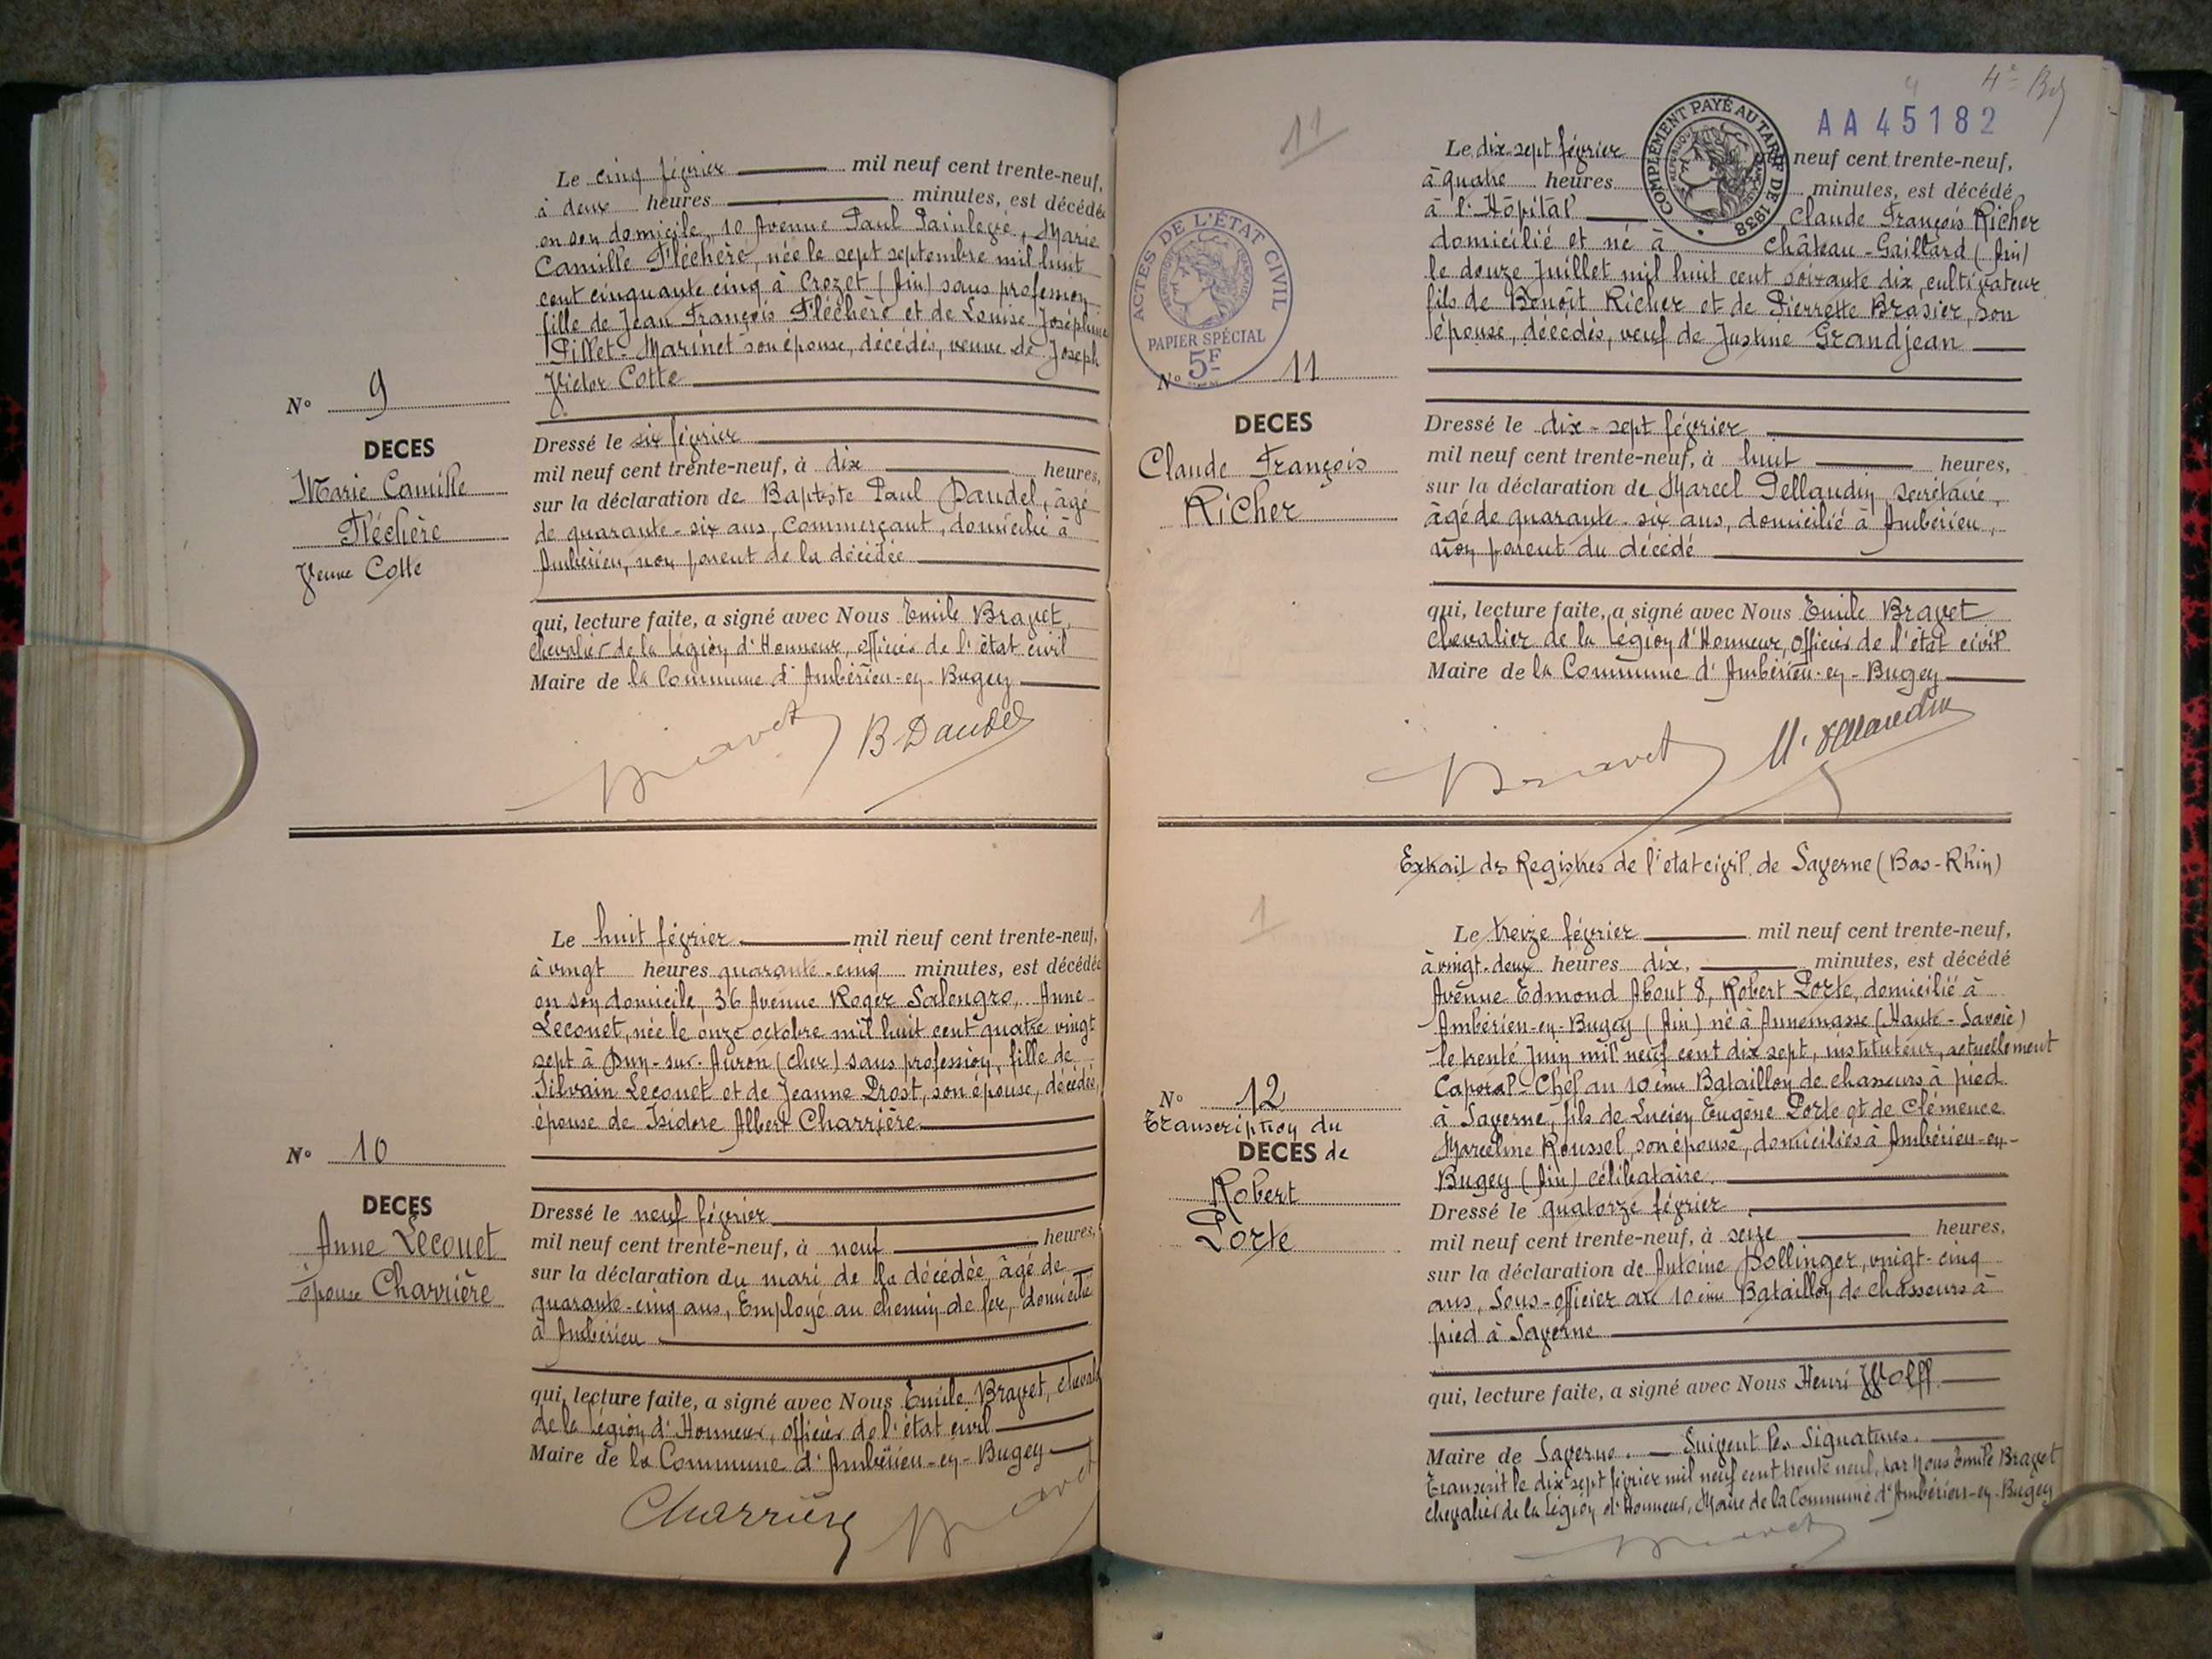 Le cinq février mil neuf cent trente-neuf,
à deux heures minutes, est décédée
en son domicile, 10 Avenue Paul Painlevé, Marie
Camille Fléchère, née le sept septembre mil huit
cent cinquante cinq à Crozet (Ain) sans profession
fille de Jean François Fléchère et de Louise Joséphine
Pillet-Marinet son épouse, décédés, veuve de Joseph
Victor Cotte
N° 9
DECES
Marie Camille
Fléchère
Veuve Cotte
Dressé le six février
mil neuf cent trente-neuf, à dix heures,
sur la déclaration de Baptiste Paul Daudel, âgé
de quarante-six ans, commerçant, domicilié à
Ambérieu, non parent de la décédée
qui, lecture faite, a signé avec Nous Emile Bravet,
chevalier de la Légion d'Honneur, officier de l'état civil
Maire de la Commune d'Ambérieu-en-Bugey
Bravet B. Daudel
Le huit février mil neuf cent trente-neuf,
à vingt heures quarante-cinq minutes, est décédée
en son domicile, 36 Avenue Roger Salengro, Anne
Leconet, née le onze octobre mil huit cent quatre vingt
sept à Dun-sur-Auron (Cher) sans profession, fille de
Silvain Leconet et de Jeanne Prost, son épouse, décédés,
épouse de Isidore Albert Charrière
N° 10
DECES
Anne Leconet
épouse Charrière
Dressé le neuf février
mil neuf cent trente-neuf, à neuf heures,
sur la déclaration du mari de la décédée, âgé de
quarante-cinq ans, Employé au chemin de fer, domicilié
à Ambérieu
qui, lecture faite, a signé avec Nous Emile Bravet, cheval
de la Légion d'Honneur, officier de l'état civil
Maire de la Commune d'Ambérieu-en-Bugey
Charrière Bravet
4e
AA 45182
11
COMPLÉMENT PAYÉ AU TARIF DE 1938
Le dix-sept février neuf cent trente-neuf,
à quatre heures minutes, est décédé
à l'Hôpital Claude François Richer
domicilié et né à Château-Gaillard (Ain)
le douze Juillet mil huit cent soixante dix, cultivateur
fils de Benoît Richer et de Pierrette Brasier, son
épouse, décédés, veuf de Justine Grandjean
ACTES DE L'ÉTAT CIVIL
PAPIER SPÉCIAL
5F
N° 11
DECES
Claude François
Richer
Dressé le dix-sept février
mil neuf cent trente-neuf, à huit heures,
sur la déclaration de Marcel Dellandin, secrétaire,
âgé de quarante-six ans, domicilié à Ambérieu,
non parent du décédé
qui, lecture faite, a signé avec Nous Emile Bravet
chevalier de la Légion d'Honneur, officier de l'état civil
Maire de la Commune d'Ambérieu-en-Bugey
Bravet
Extrait des Registres de l'état civil de Saverne (Bas-Rhin)
1
Le treize février mil neuf cent trente-neuf,
à vingt-deux heures dix, minutes, est décédé
Avenue Edmond About 8, Robert Porte, domicilié à
Ambérieu-en-Bugey (Ain) né à Annemasse (Haute-Savoie)
le trente Juin mil neuf cent dix sept, instituteur, actuellement
Caporal-Chef au 10ème Bataillon de chasseurs à pied
à Saverne, fils de Lucien Eugène Porte et de Clémence
Marceline Roussel, son épouse, domiciliés à Ambérieu-en-
Bugey (Ain) célibataire.
N° 12
Transcription du
DECES de
Robert
Porte
Dressé le quatorze février
mil neuf cent trente-neuf, à seize heures,
sur la déclaration de Antoine Dollinger, vingt-cinq
ans, Sous-officier au 10ème Bataillon de chasseurs à
pied à Saverne
qui, lecture faite, a signé avec Nous Henri Wolff.
Maire de Saverne. — Suivent les Signatures.
Transcrit le dix sept février mil neuf cent trente neuf, par Nous Emile Bravet
chevalier de la Légion d'Honneur, Maire de la Commune d'Ambérieu-en-Bugey
Bravet